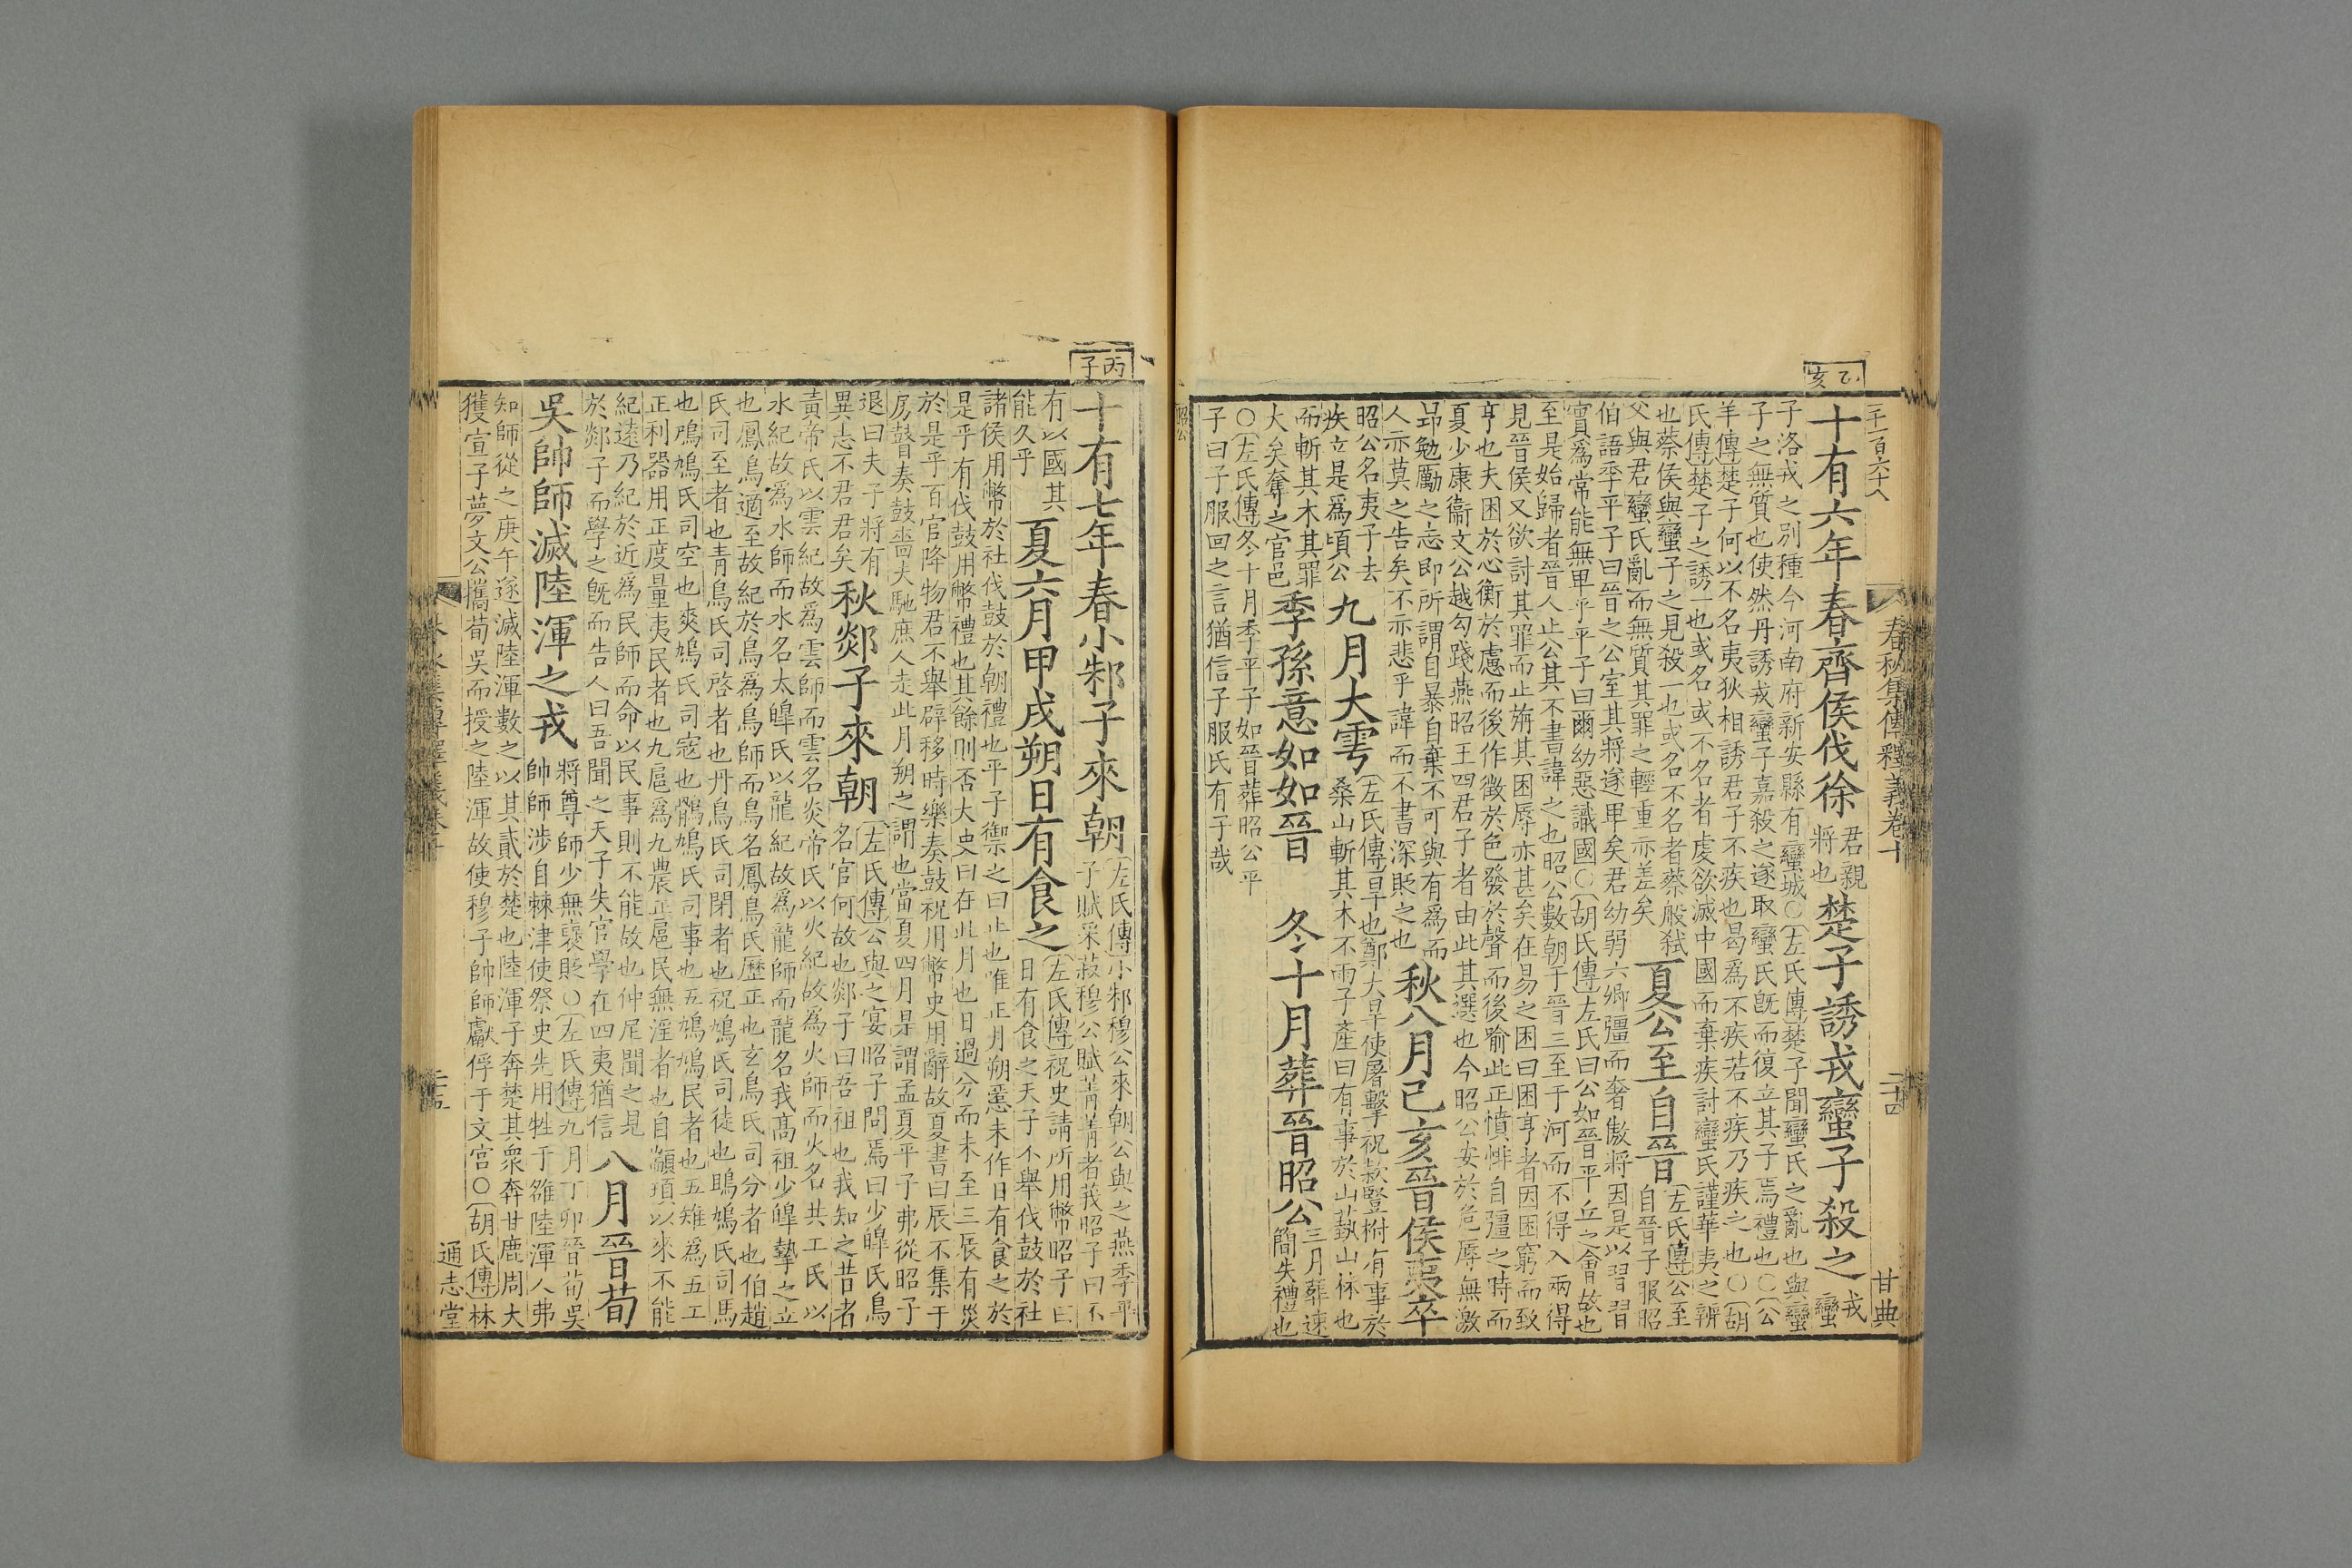 千一百六十八
春秋集傳釋義卷十
二十四
甘典
乙亥
十有六年春齊侯伐徐
君親
將也
楚子誘戎蠻子殺之
戎
蠻
子洛戎之別種今河南府新安縣有蠻城○左氏傳楚子聞蠻氏之亂也與蠻
子之無質也使然丹誘戎蠻子嘉殺之遂取蠻氏旣而復立其子焉禮也○公
羊傳楚子何以不名夷狄相誘君子不疾也曷爲不疾若不疾乃疾之也○胡
氏傳楚子之誘一也或名或不名者虔欲滅中國而棄疾討蠻氏謹華夷之辨
也蔡侯與蠻子之見殺一也或名不名者蔡般弒
父與君蠻氏亂而無質其罪之輕重亦差矣
夏公至自晉
左氏傳公至
自晉子服昭
伯語季平子曰晉之公室其將遂卑矣君幼弱六卿彊而奢傲將因是以習習
實爲常能無卑乎平子曰爾幼惡識國○胡氏傳左氏曰公如晉平丘之會故也
至是始歸者晉人止公其不書諱之也昭公數朝于晉三至于河而不得入兩得
見晉侯又欲討其罪而止旃其困辱亦甚矣在易之困曰困亨者因困窮而致
亨也夫困於心衡於慮而後作徵於色發於聲而後喻此正憤悱自彊之時而
夏少康衞文公越勾踐燕昭王四君子者由此其選也今昭公安於危辱無激
昻勉勵之志即所謂自暴自棄不可與有爲而
人亦莫之告矣不亦悲乎諱而不書深貶之也
秋八月已亥晉侯夷卒
昭公名夷子去
疾立是爲頃公
九月大雩
左氏傳旱也鄭大旱使屠擊祝款豎柎有事於
桑山斬其木不雨子產曰有事於山蓺山林也
而斬其木其罪
大矣奪之官邑
季孫意如如晉
冬十月葬晉昭公
三月葬速
簡失禮也
○左氏傳冬十月季平子如晉葬昭公平
子曰子服回之言猶信子服氏有子哉
昭公
丙子
十有七年春小邾子來朝
左氏傳小邾穆公來朝公與之燕季平
子賦采菽穆公賦菁菁者莪昭子曰不
有以國其
能久乎
夏六月甲戌朔日有食之
左氏傳祝史請所用幣昭子曰
日有食之天子不舉伐鼓於社
諸侯用幣於社伐鼓於朝禮也平子禦之曰止也唯正月朔慝未作日有食之於
是乎有伐鼓用幣禮也其餘則否大史曰在此月也日過分而未至三辰有災
於是乎百官降物君不舉辟移時樂奏鼓祝用幣史用辭故夏書曰辰不集于
房瞽奏鼓嗇夫馳庶人走此月朔之謂也當夏四月是謂孟夏平子弗從昭子
退曰夫子將有
異志不君君矣
秋郯子來朝
左氏傳公與之宴昭子問焉曰少皥氏鳥
名官何故也郯子曰吾祖也我知之昔者
黃帝氏以雲紀故爲雲師而雲名炎帝氏以火紀故爲火師而火名共工氏以
水紀故爲水師而水名太皥氏以龍紀故爲龍師而龍名我高祖少皥摯之立
也鳳鳥適至故紀於鳥爲鳥師而鳥名鳳鳥氏歷正也玄鳥氏司分者也伯趙
氏司至者也青鳥氏司啓者也丹鳥氏司閉者也祝鳩氏司徒也鴡鳩氏司馬
也鳲鳩氏司空也爽鳩氏司寇也鶻鳩氏司事也五鳩鳩民者也五雉爲五工
正利器用正度量夷民者也九扈爲九農正扈民無淫者也自顓頊以來不能
紀遠乃紀於近爲民師而命以民事則不能故也仲尼聞之見
於郯子而學之旣而告人曰吾聞之天子失官學在四夷猶信
八月晉荀
吳帥師滅陸渾之戎
將尊師少無褒貶○左氏傳九月丁卯晉荀吳
帥師涉自棘津使祭史先用牲于雒陸渾人弗
知師從之庚午遂滅陸渾數之以其貳於楚也陸渾子奔楚其衆奔甘鹿周大
獲宣子夢文公攜荀吳而授之陸渾故使穆子帥師獻俘于文宮○胡氏傳林
二十五
通志堂